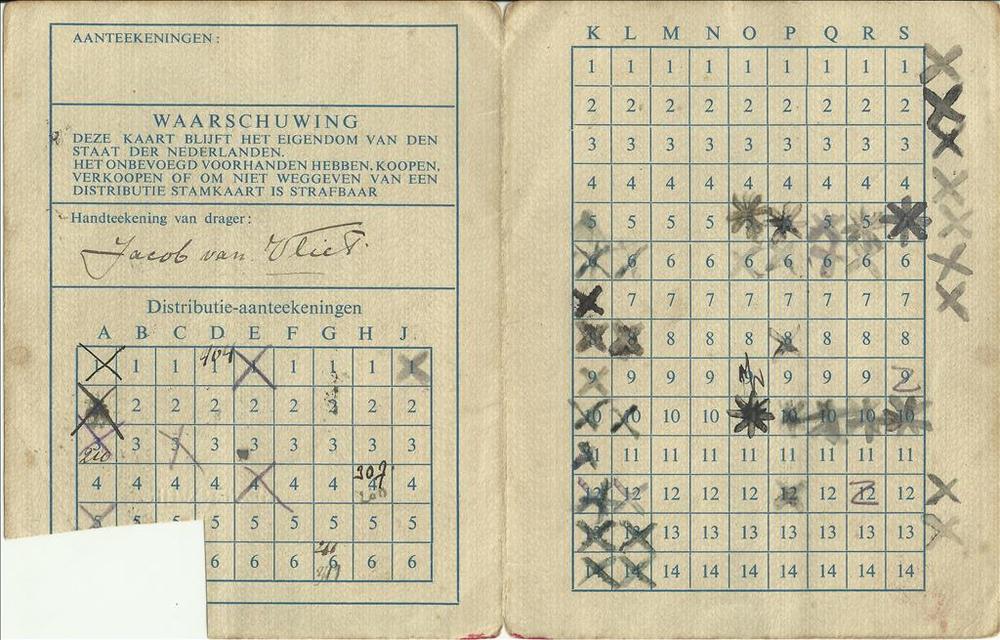 AANTEEKENINGEN:
WAARSCHUWING
DEZE KAART BLIJFT HET EIGENDOM VAN DEN
STAAT DER NEDERLANDEN.
HET ONBEVOEGD VOORHANDEN HEBBEN, KOOPEN,
VERKOOPEN OF OM NIET WEGGEVEN VAN EEN
DISTRIBUTIE STAMKAART IS STRAFBAAR
Handteekening van drager:
Jacob van Vliet.
Distributie-aanteekeningen
A B C D E F G H J.
1 1 1 404 1 1 1 1 1
2 2 2 2 2 2 2 2
3 3 3 3 3 3 3 3 3
210
4 4 4 4 4 4 4 307
5 5 5 5 5 5 5 5 5
6 6 6 6 6 6
K L M N O P Q R S
1 1 1 1 1 1 1 1 1
2 2 2 2 2 2 2 2 2
3 3 3 3 3 3 3 3 3
4 4 4 4 4 4 4 4 4
5 5 5 5 5 5 5
6 6 6 6 6 6 6 6 6
7 7 7 7 7 7 7 7
8 8 8 8 8 8 8 8 8
9 9 9 9 9 9 9 9 9
10 10 10 10 10 10 10 10
11 11 11 11 11 11 11 11 11
12 12 12 12 12 12 12 12 12
13 13 13 13 13 13 13 13 13
14 14 14 14 14 14 14 14 14